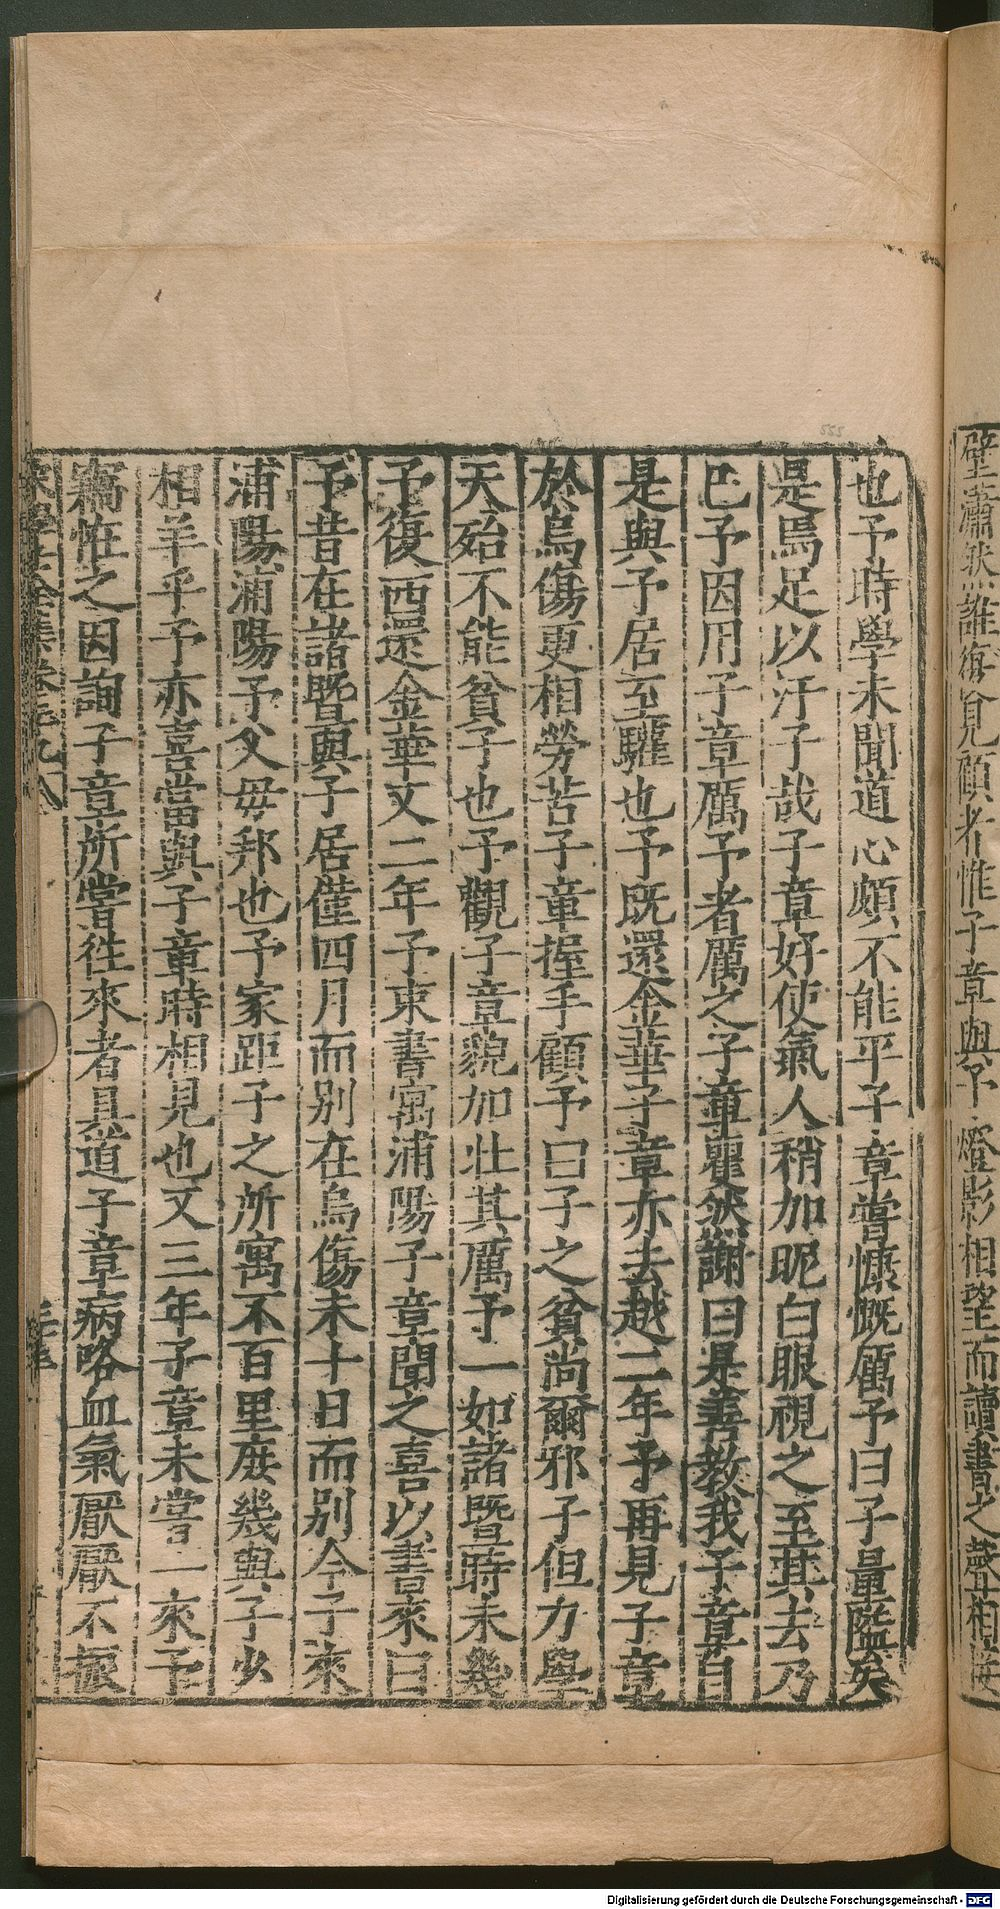 壁蕭然誰復見顧者惟子章與予燈影相望而讀書之聲相接
也予時學未聞道心頗不能平子章嘗慷慨厲予曰子量隘矣
是焉足以汙子哉子章好使氣人稍加昵白眼視之至其去乃
已予因用子章厲予者厲之子章矍然謝曰是善教我子章自
是與予居至驩也予既還金華子章亦去越二年予再見子章
於烏傷更相勞苦子章握手顧予曰子之貧尚爾邪子但力學
天殆不能貧子也予觀子章貌加壯其厲予一如諸暨時未幾
予復西還金華又二年予東書寓浦陽子章聞之喜以書來曰
予昔在諸暨與子居僅四月而別在烏傷未十日而別今子來
浦陽浦陽予父毋邦也予家距子之所寓不百里庻幾與子少
相羊乎予亦喜當與子章時相見也又三年子章未嘗一來予
竊恠之因詢子章所嘗徃來者具道子章病咯血氣厭厭不振
宋學士全集卷之九
Digitalisierung gefördert durch die Deutsche Forschungsgemeinschaft - DFG